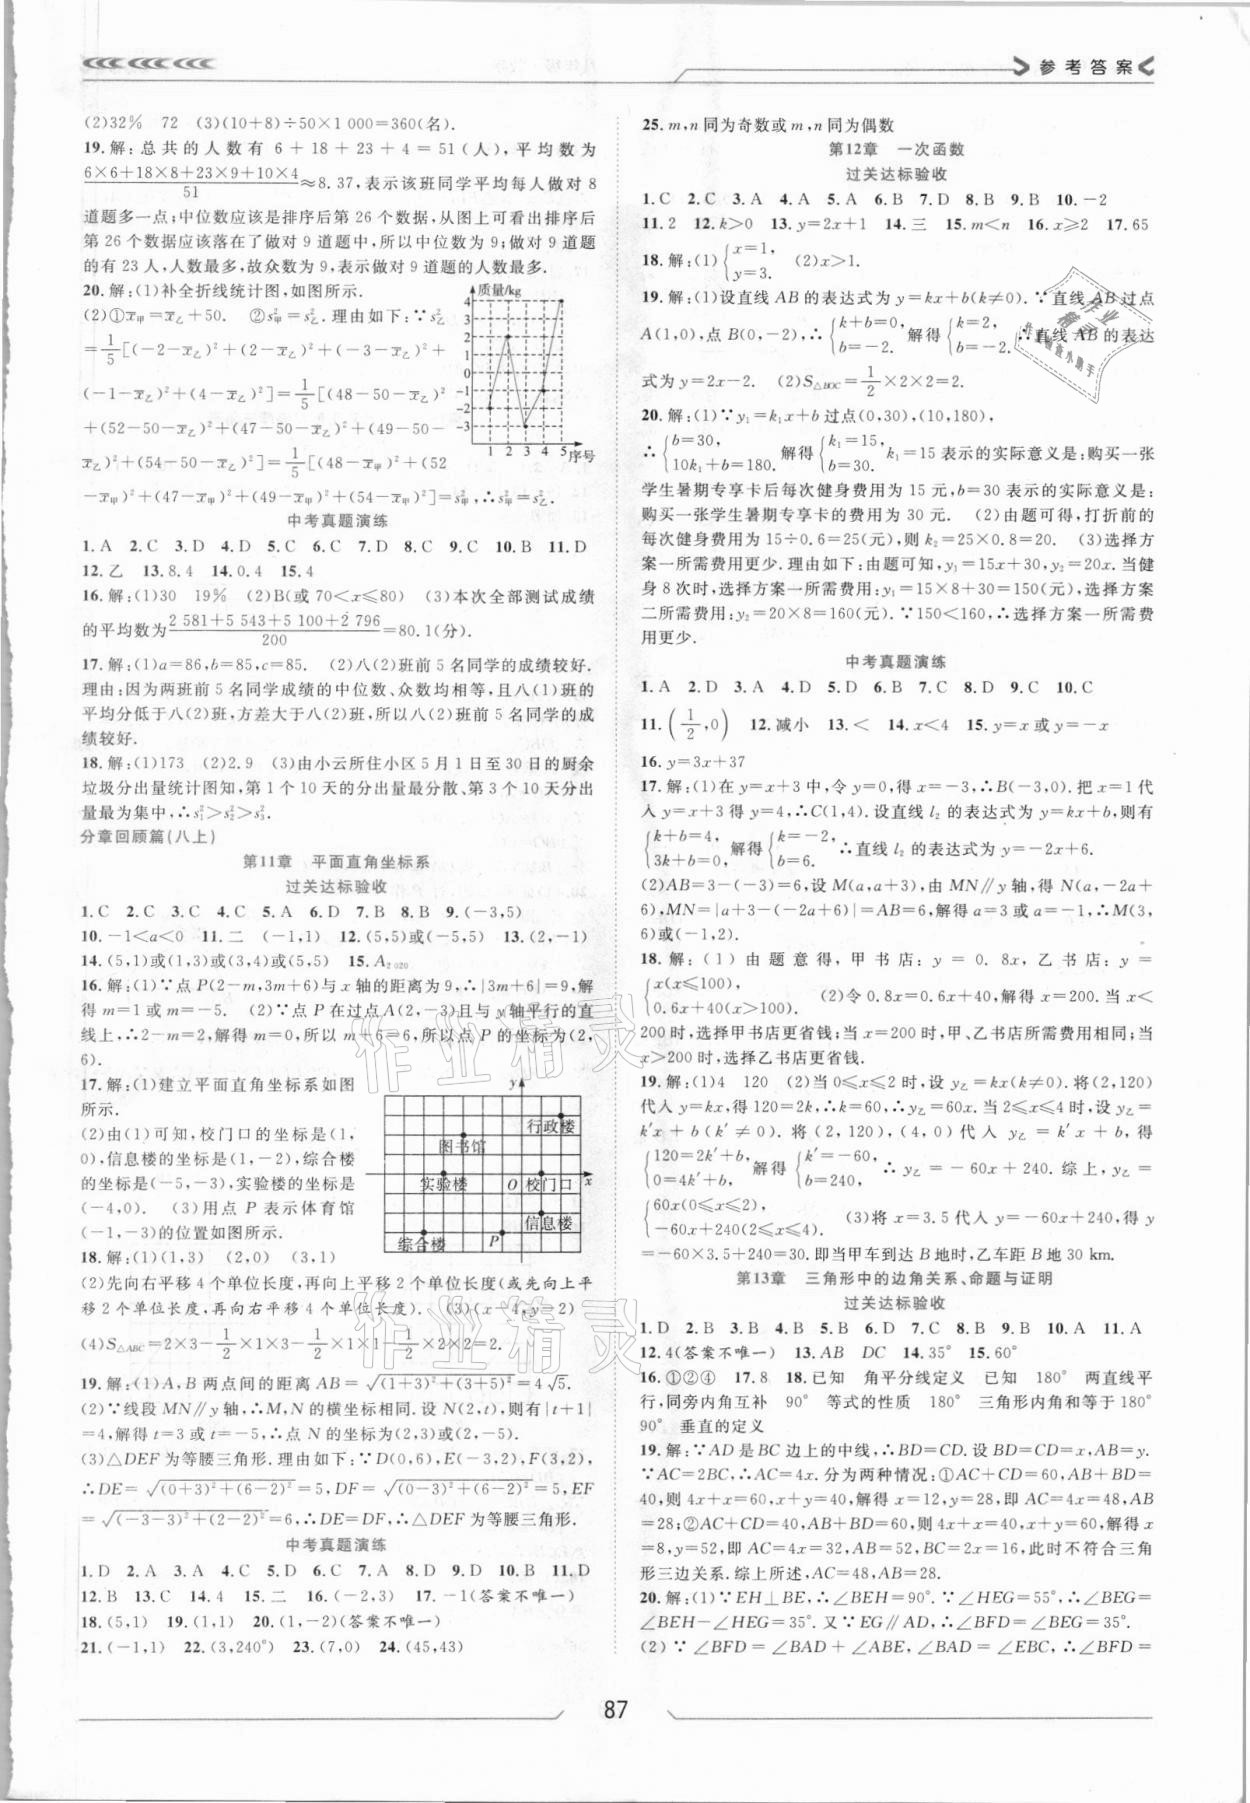 参考答案
(2)32%　72　(3)(10+8)÷50×1 000=360(名).
19.解:总共的人数有 6+18+23+4=51(人),平均数为
(6×6+18×8+23×9+10×4)/51≈8.37,表示该班同学平均每人做对 8
道题多一点;中位数应该是排序后第 26 个数据,从图上可看出排序后
第 26 个数据应该落在了做对 9 道题中,所以中位数为 9;做对 9 道题
的有 23 人,人数最多,故众数为 9,表示做对 9 道题的人数最多.
20.解:(1)补全折线统计图,如图所示.
(2)①x̄甲=x̄乙+50.　②s²甲=s²乙.理由如下:∵s²乙
=1/5[(-2-x̄乙)²+(2-x̄乙)²+(-3-x̄乙)²+
(-1-x̄乙)²+(4-x̄乙)²]=1/5[(48-50-x̄乙)²
+(52-50-x̄乙)²+(47-50-x̄乙)²+(49-50
-x̄乙)²+(54-50-x̄乙)²]=1/5[(48-x̄甲)²+(52
-x̄甲)²+(47-x̄甲)²+(49-x̄甲)²+(54-x̄甲)²]=s²甲,∴s²甲=s²乙.
质量/kg
4
3
2
1
0
-1
-2
-3
1 2 3 4 5 序号
中考真题演练
1.A　2.C　3.D　4.D　5.C　6.C　7.D　8.C　9.C　10.B　11.D
12.乙　13.8.4　14.0.4　15.4
16.解:(1)30　19%　(2)B(或 70<x≤80)　(3)本次全部测试成绩
的平均数为(2 581+5 543+5 100+2 796)/200=80.1(分).
17.解:(1)a=86,b=85,c=85.　(2)八(2)班前 5 名同学的成绩较好.
理由:因为两班前 5 名同学成绩的中位数、众数均相等,且八(1)班的
平均分低于八(2)班,方差大于八(2)班,所以八(2)班前 5 名同学的成
绩较好.
18.解:(1)173　(2)2.9　(3)由小云所住小区 5 月 1 日至 30 日的厨余
垃圾分出量统计图知,第 1 个 10 天的分出量最分散、第 3 个 10 天分出
量最为集中,∴s₁²>s₂²>s₃².
分章回顾篇(八上)
第11章　平面直角坐标系
过关达标验收
1.C　2.C　3.C　4.C　5.A　6.D　7.B　8.B　9.(-3,5)
10.-1<a<0　11.二　(-1,1)　12.(5,5)或(-5,5)　13.(2,-1)
14.(5,1)或(1,3)或(3,4)或(5,5)　15.A₂ ₀₂₀
16.解:(1)∵点 P(2-m,3m+6)与 x 轴的距离为 9,∴|3m+6|=9,解
得 m=1 或 m=-5.　(2)∵点 P 在过点 A(2,-3)且与 y 轴平行的直
线上,∴2-m=2,解得 m=0,所以 m+6=6,所以点 P 的坐标为(2,
6).
17.解:(1)建立平面直角坐标系如图
所示.
(2)由(1)可知,校门口的坐标是(1,
0),信息楼的坐标是(1,-2),综合楼
的坐标是(-5,-3),实验楼的坐标是
(-4,0).　(3)用点 P 表示体育馆
(-1,-3)的位置如图所示.
y
行政楼
图书馆
实验楼　O　校门口　x
信息楼
综合楼　P
18.解:(1)(1,3)　(2,0)　(3,1)
(2)先向右平移 4 个单位长度,再向上平移 2 个单位长度(或先向上平
移 2 个单位长度,再向右平移 4 个单位长度).　(3)(x-4,y-2)
(4)S△ABC=2×3-1/2×1×3-1/2×1×1-1/2×2×2=2.
19.解:(1)A,B 两点间的距离 AB=√((1+3)²+(3+5)²)=4√5.
(2)∵线段 MN∥y 轴,∴M,N 的横坐标相同.设 N(2,t),则有|t+1|
=4,解得 t=3 或 t=-5,∴点 N 的坐标为(2,3)或(2,-5).
(3)△DEF 为等腰三角形.理由如下:∵D(0,6),E(-3,2),F(3,2),
∴DE=√((0+3)²+(6-2)²)=5,DF=√((0-3)²+(6-2)²)=5,EF
=√((-3-3)²+(2-2)²)=6,∴DE=DF,∴△DEF 为等腰三角形.
中考真题演练
1.D　2.A　3.A　4.C　5.D　6.A　7.A　8.D　9.D　10.B　11.D
12.B　13.C　14.4　15.二　16.(-2,3)　17.-1(答案不唯一)
18.(5,1)　19.(1,1)　20.(1,-2)(答案不唯一)
21.(-1,1)　22.(3,240°)　23.(7,0)　24.(45,43)
25.m,n 同为奇数或 m,n 同为偶数
第12章　一次函数
过关达标验收
1.C　2.C　3.A　4.A　5.A　6.B　7.D　8.B　9.B　10.-2
11.2　12.k>0　13.y=2x+1　14.三　15.m<n　16.x≥2　17.65
18.解:(1){x=1, y=3.　(2)x>1.
19.解:(1)设直线 AB 的表达式为 y=kx+b(k≠0).∵直线 AB 过点
A(1,0),点 B(0,-2),∴{k+b=0, b=-2. 解得{k=2, b=-2. ∴直线 AB 的表达
式为 y=2x-2.　(2)S△BOC=1/2×2×2=2.
20.解:(1)∵y₁=k₁x+b 过点(0,30),(10,180),
∴{b=30, 10k₁+b=180. 解得{k₁=15, b=30. k₁=15 表示的实际意义是:购买一张
学生暑期专享卡后每次健身费用为 15 元,b=30 表示的实际意义是:
购买一张学生暑期专享卡的费用为 30 元.　(2)由题可得,打折前的
每次健身费用为 15÷0.6=25(元),则 k₂=25×0.8=20.　(3)选择方
案一所需费用更少.理由如下:由题可知,y₁=15x+30,y₂=20x.当健
身 8 次时,选择方案一所需费用:y₁=15×8+30=150(元),选择方案
二所需费用:y₂=20×8=160(元).∵150<160,∴选择方案一所需费
用更少.
中考真题演练
1.A　2.D　3.A　4.D　5.D　6.B　7.C　8.D　9.C　10.C
11.(1/2,0)　12.减小　13.<　14.x<4　15.y=x 或 y=-x
16.y=3x+37
17.解:(1)在 y=x+3 中,令 y=0,得 x=-3,∴B(-3,0).把 x=1 代
入 y=x+3 得 y=4,∴C(1,4).设直线 l₂ 的表达式为 y=kx+b,则有
{k+b=4, 3k+b=0. 解得{k=-2, b=6. ∴直线 l₂ 的表达式为 y=-2x+6.
(2)AB=3-(-3)=6,设 M(a,a+3),由 MN∥y 轴,得 N(a,-2a+
6),MN=|a+3-(-2a+6)|=AB=6,解得 a=3 或 a=-1,∴M(3,
6)或(-1,2).
18.解:(1)由题意得,甲书店:y=0.8x,乙书店:y=
{x(x≤100), 0.6x+40(x>100).　(2)令 0.8x=0.6x+40,解得 x=200.当 x<
200 时,选择甲书店更省钱;当 x=200 时,甲、乙书店所需费用相同;当
x>200 时,选择乙书店更省钱.
19.解:(1)4　120　(2)当 0≤x≤2 时,设 y乙=kx(k≠0).将(2,120)
代入 y=kx,得 120=2k,∴k=60,∴y乙=60x.当 2≤x≤4 时,设 y乙=
k′x+b(k′≠0).将(2,120),(4,0)代入 y乙=k′x+b,得
{120=2k′+b, 0=4k′+b, 解得{k′=-60, b=240, ∴y乙=-60x+240.综上,y乙=
{60x(0≤x≤2), -60x+240(2≤x≤4).　(3)将 x=3.5 代入 y=-60x+240,得 y=
-60×3.5+240=30.即当甲车到达 B 地时,乙车距 B 地 30 km.
第13章　三角形中的边角关系、命题与证明
过关达标验收
1.D　2.B　3.B　4.B　5.B　6.D　7.C　8.B　9.B　10.A　11.A
12.4(答案不唯一)　13.AB　DC　14.35°　15.60°
16.①②④　17.8　18.已知　角平分线定义　已知　180°　两直线平
行,同旁内角互补　90°　等式的性质　180°　三角形内角和等于 180°
90°　垂直的定义
19.解:∵AD 是 BC 边上的中线,∴BD=CD.设 BD=CD=x,AB=y.
∵AC=2BC,∴AC=4x.分为两种情况:①AC+CD=60,AB+BD=
40,则 4x+x=60,x+y=40,解得 x=12,y=28,即 AC=4x=48,AB
=28;②AC+CD=40,AB+BD=60,则 4x+x=40,x+y=60,解得 x
=8,y=52,即 AC=4x=32,AB=52,BC=2x=16,此时不符合三角
形三边关系.综上所述,AC=48,AB=28.
20.解:(1)∵EH⊥BE,∴∠BEH=90°.∵∠HEG=55°,∴∠BEG=
∠BEH-∠HEG=35°.又∵EG∥AD,∴∠BFD=∠BEG=35°.
(2)∵∠BFD=∠BAD+∠ABE,∠BAD=∠EBC,∴∠BFD=
87
作业精灵
作业精灵
作业精灵